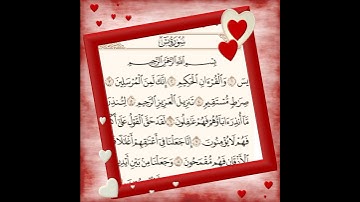 سورة يس
بسم الله الرحمن الرحيم
يس ۝ والقرءان الحكيم ۝ إنك لمن المرسلين ۝
صراط مستقيم ۝ تنزيل العزيز الرحيم ۝ لتنذر
ما أنذر ءاباؤهم فهم غافلون ۝ لقد حق القول على أ
فهم لا يؤمنون ۝ إنا جعلنا في أعناقهم أغلالا
الأذقان فهم مقمحون ۝ وجعلنا من بين أيدي